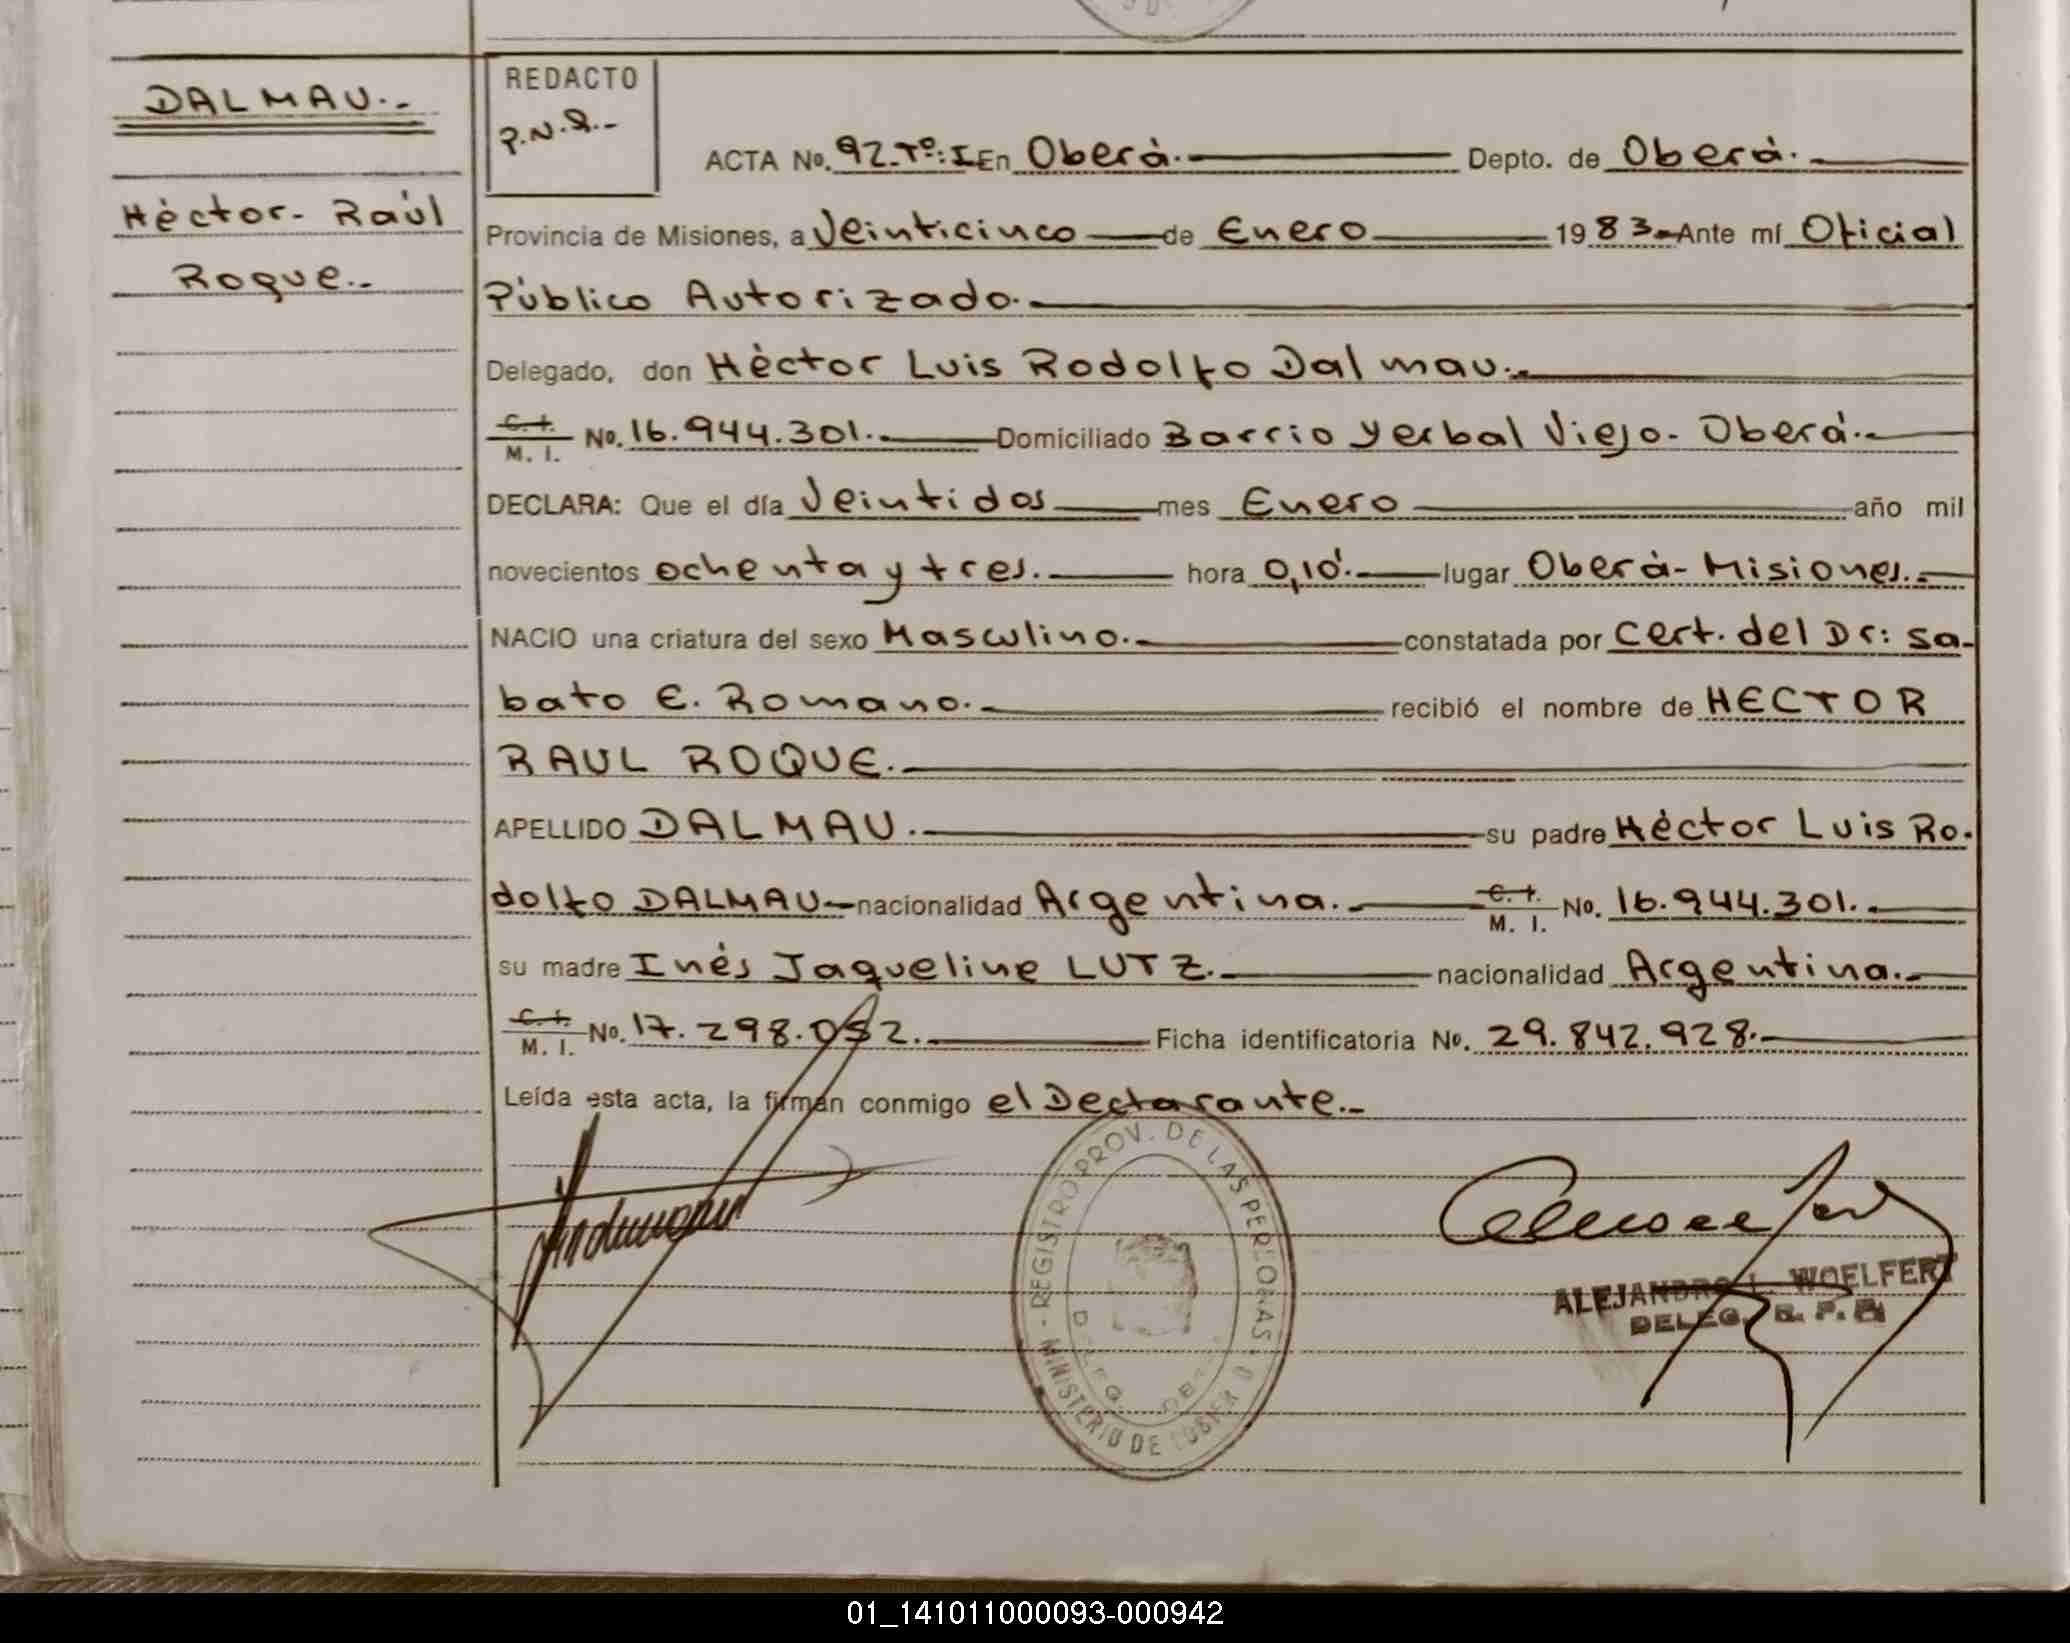 DALMAU.-
Héctor- Raúl
Roque.-
REDACTO
P.N.R.-
ACTA No. 92.Tº:I En Oberá. Depto. de Oberá.
Provincia de Misiones, a Veinticinco de Enero 1983.- Ante mí Oficial
Público Autorizado.
Delegado, don Héctor Luis Rodolfo Dalmau.-
C. I.
M. I. No. 16.944.301. Domiciliado Barrio Yerbal Viejo- Oberá.-
DECLARA: Que el día Veintidos mes Enero año mil
novecientos ochenta y tres. hora 0,10'. lugar Oberá- Misiones.-
NACIO una criatura del sexo Masculino. constatada por Cert. del Dr: Sa-
bato E. Romano. recibió el nombre de HECTOR
RAUL ROQUE.
APELLIDO DALMAU. su padre Héctor Luis Ro-
dolfo DALMAU nacionalidad Argentina. C. I.
M. I. No. 16.944.301.
su madre Inés Jaqueline LUTZ. nacionalidad Argentina.-
C. I.
M. I. No. 17.298.052. Ficha identificatoria No. 29.842.928.
Leída esta acta, la firman conmigo el Declarante.-
REGISTRO PROV. DE LAS PERSONAS
MINISTERIO DE GOBIERNO
DELEG. OBERA
ALEJANDRO L. WOELFERT
DELEG. R. P. P.
01_141011000093-000942